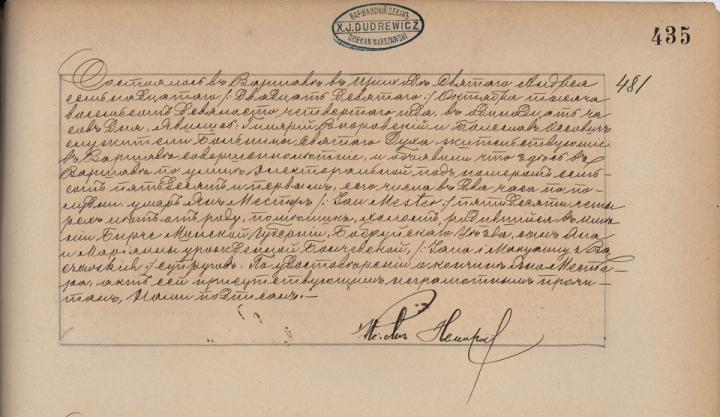 ВАРШАВСКІЙ ДЕКАНЪ
X.J. DUDREWICZ
DZIEKAN WARSZAWSKI
435
481
Состоялось въ Варшавѣ въ Приходѣ Святаго Андрея
семьнадцатаго /: двадцать девятаго :/ Октября тысяча
восемьсотъ девяносто четвертаго года, въ одинадцать ча-
совъ дня. Явились: и Болеславъ
служители Больницы Святаго Духа, жительствующіе
въ Варшавѣ совершеннолѣтніе, и объявили что здѣсь въ
Варшавѣ по улицѣ Электоральной подъ номеромъ семь-
сотъ пятьдесятъ первымъ, сего числа въ два часа по по-
лудни умеръ Янъ Местеръ /: Jan Mester :/ пятидесяти четы-
рехъ лѣтъ отъ роду, холостъ, родившійся въ
Минской Губерніи Бобруйскаго Уѣзда, сынъ Яна
и Маріянны урожденной /: Jana i Maryanny z
:/ супруговъ. По удостовѣреніи о кончинѣ Яна Месте-
ра, актъ сей присутствующимъ неграмотнымъ прочи-
танъ, Нами подписанъ. —